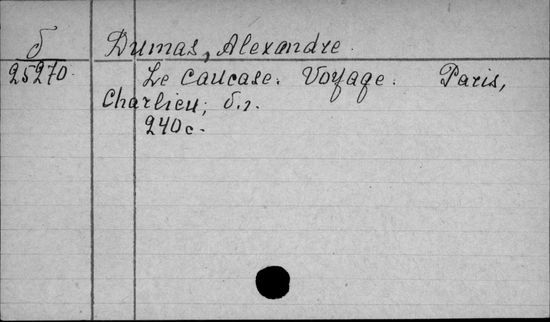 б
Dumas, Alexandre.
25270.
Le Caucase. Voyage. Paris,
Charlieu, б.г.
240 с.